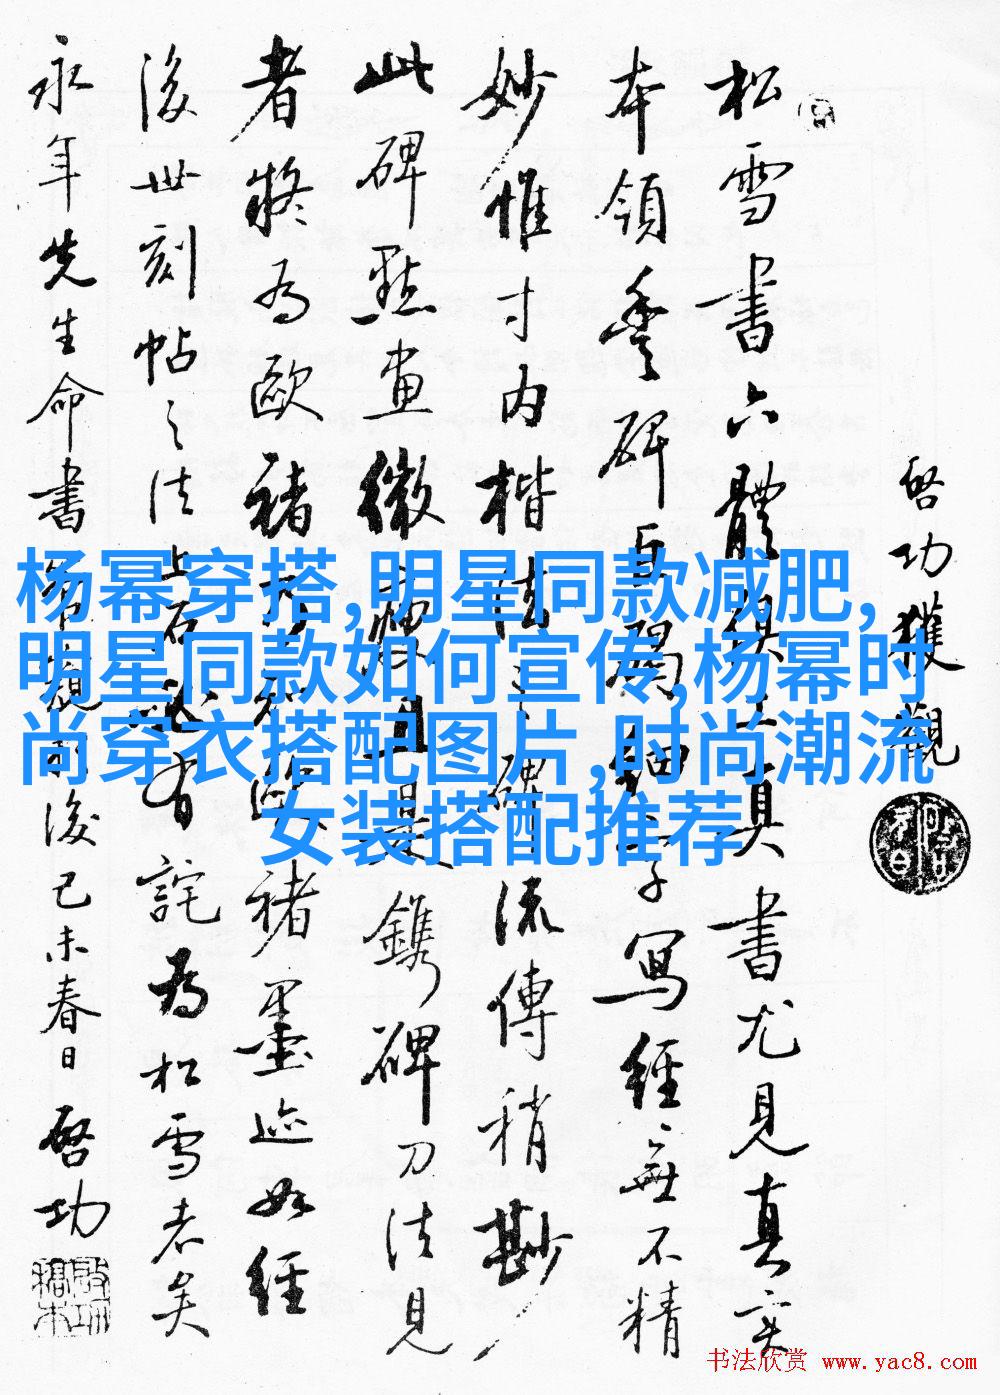 啓功獲觀
松雪書六體真書尤見真
本領豐碑寫經無不精
妙惟寸内楷法碑流傳稍尠
此碑點畫鐫碑刀法見
者將為歐褚褚墨迹如經
後世刻帖之法上石有詫為松雪者矣
永年先生命書觀後己未春日啓功
杨幂穿搭,明星同款减肥,
明星同款如何宣传,杨幂时
尚穿衣搭配图片,时尚潮流
女装搭配推荐
书法欣赏 www.yac8.com